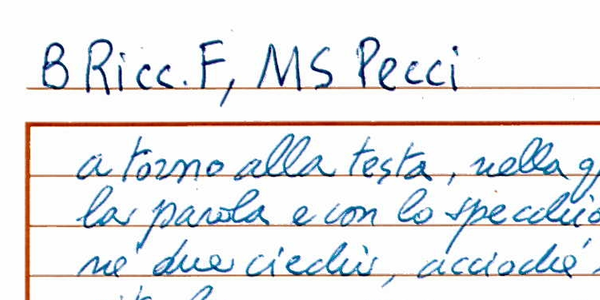 B Ricc. F, MS Pecci
a torno alla testa, nella
la parola e con lo specchio
né due ciechi, acciochè